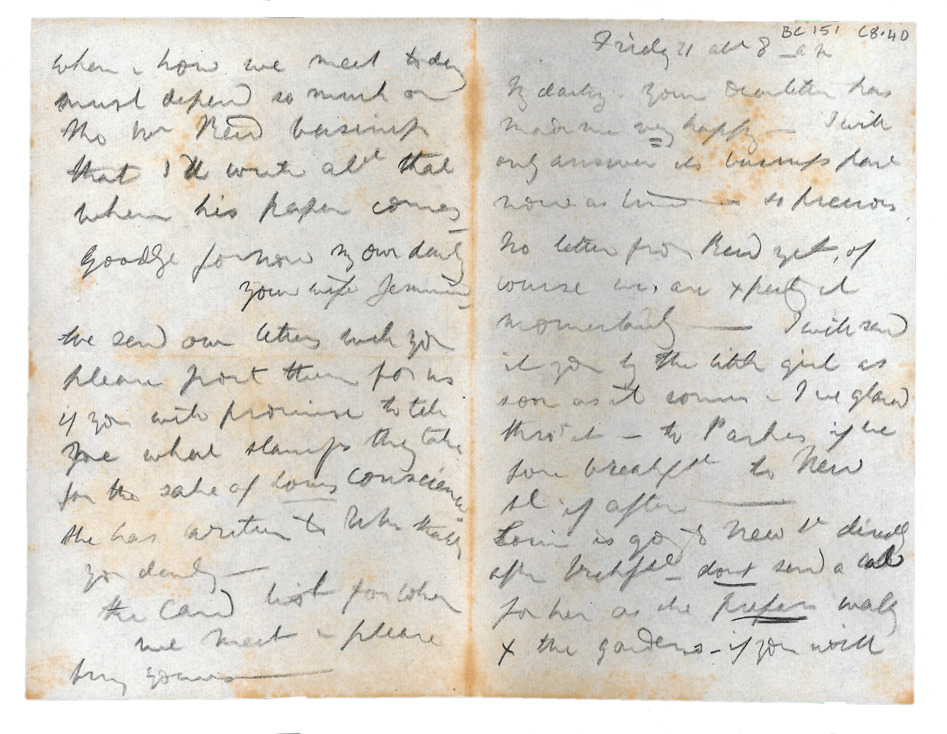 BC 151 C8.40
Friday 21 abt 8 am
My darling your dear letter has
made me very happy – I will
only answer its business part
now as time is so precious.
No letter from Reid yet, of
course we are expecting it
momentarily — I will send
it you by the little girl as
soon as it comes – I've glanced
thro' it – to Parkes if we
breakfst to New
St if after —
Louie is going to New St directly
after breakfst – dont send a cab
for her as she prefers walking
x the gardens – if you will
when & how we meet today
must depend so much on
the Reid business
that I'll write abt that
when his paper comes
Goodbye for now my own darling
your wife Jemima
We send our letters with you
please post them for us
if you will promise to tell
me what stamps they take
for the sake of Louie's conscience
She has written to thank
you darling —
the Card list for when
we meet – please
bring yours —